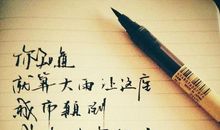 你知道
就算大雨让这座
城市颠倒